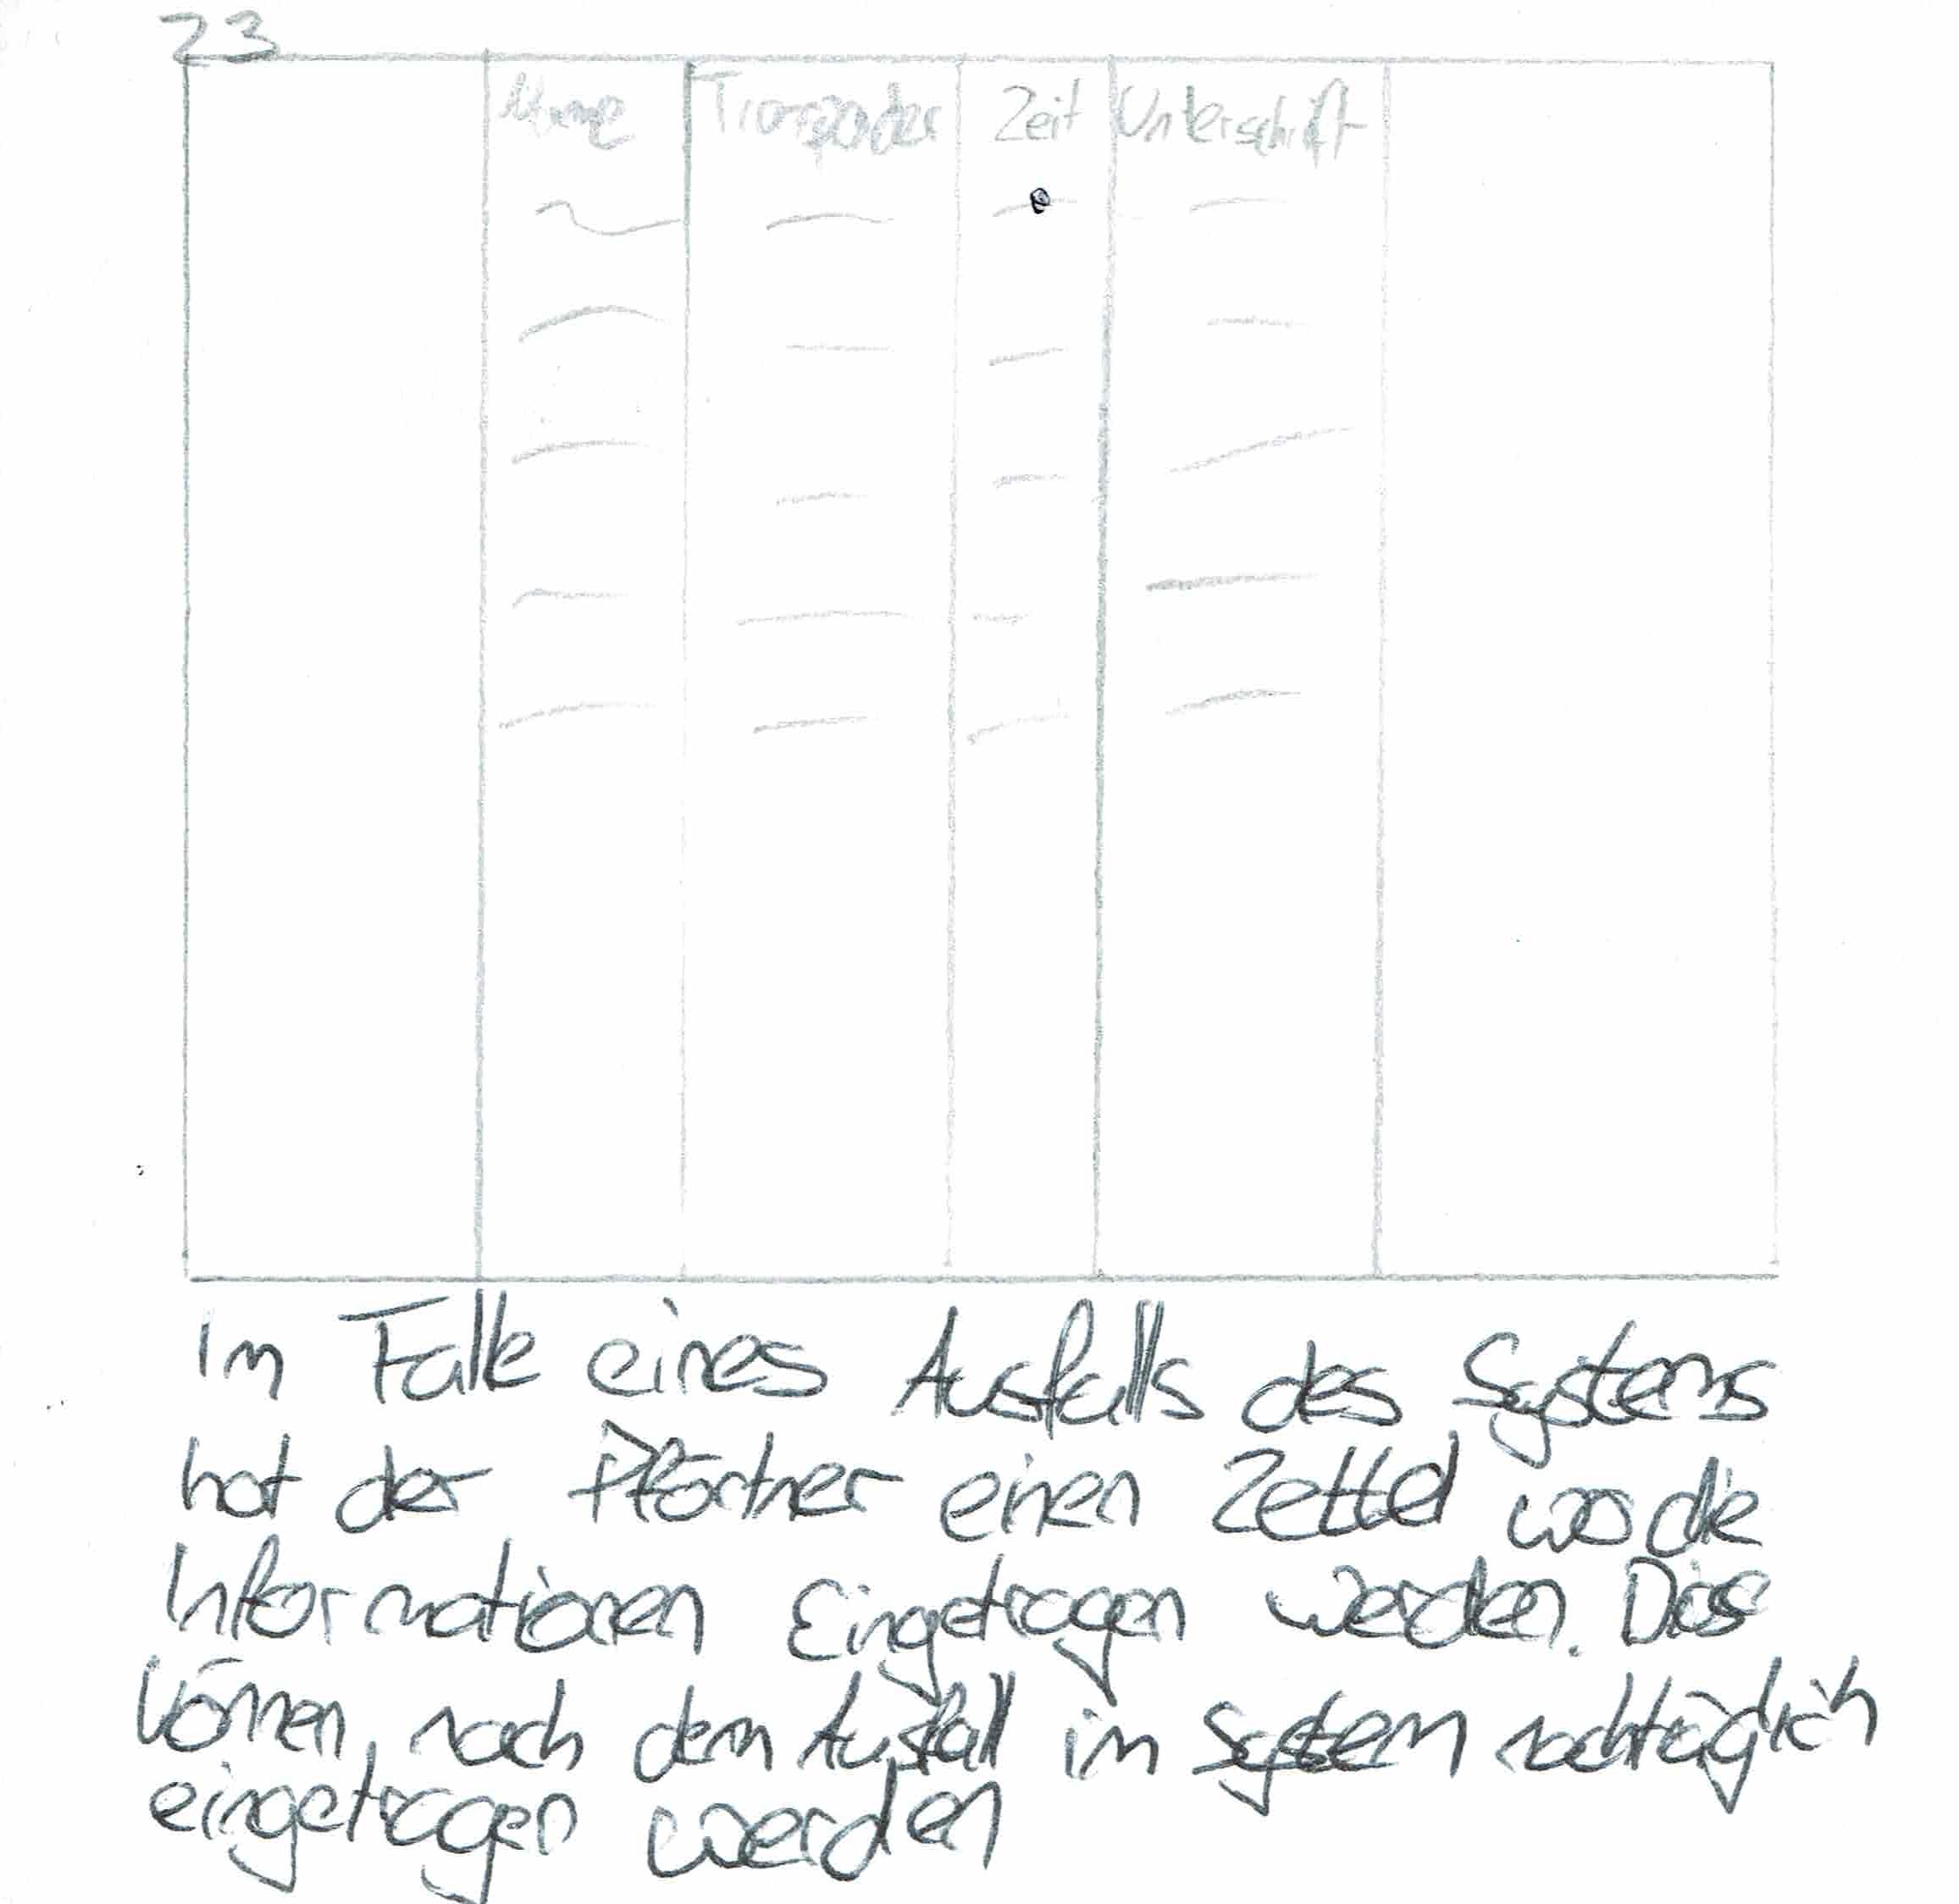 23
Name Transponder Zeit Unterschrift
im Falle eines Ausfalls des Systems
hat der Pförtner einen Zettel wo die
Informationen Eingetragen werden. Diese
können, nach dem Ausfall im System nachträglich
eingetragen werden